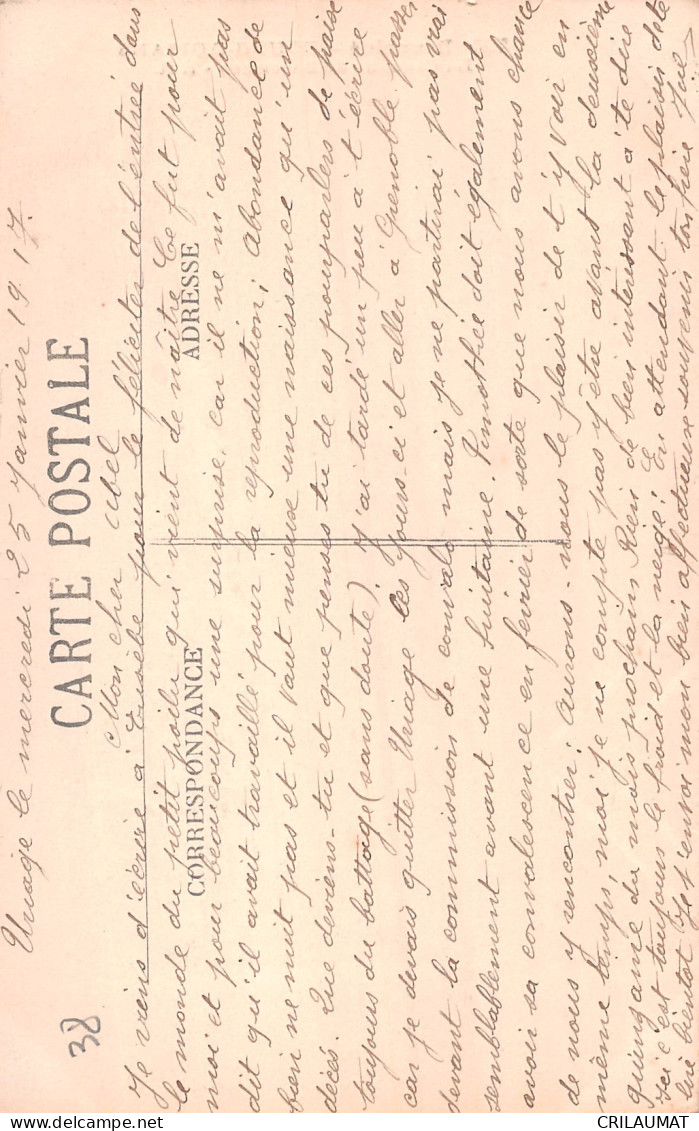 Uriage le mercredi 25 Janvier 1917.
CARTE POSTALE
Mon cher Abel
Je viens d'écrire à Eusèbe pour le féliciter de l'entrée dans
le monde du petit poilu qui vient de naître. Ce fut pour
CORRESPONDANCE
ADRESSE
moi et pour beaucoup une surprise, car il ne m'avait pas
dit qu'il avait travaillé pour la reproduction; Abondance de
bien ne nuit pas et il vaut mieux une naissance qu'un
décés. Que deviens-tu et que penses tu de ces pourparlers de paix
toujours du battage (sans doute). J'ai tardé un peu à t'écrire
car je devais quitter Uriage ces jours-ci et aller à Grenoble passer
devant la commission de convalo mais je ne partirai pas vrai
semblablement avant une huitaine. Timothée doit également
avoir sa convalescence en février de sorte que nous avons chance
de nous y rencontrer; Aurons-nous le plaisir de t'y voir en
même temps, moi je ne compte pas y être avant la deuxième
quinzaine du mois prochain Rien de bien intéressant à te dire
Ici c'est toujours le froid et la neige! En attendant le plaisir de te
lire bientôt Je t'envoi mon bien affectueux souvenir ton frère
38
CRILAUMAT